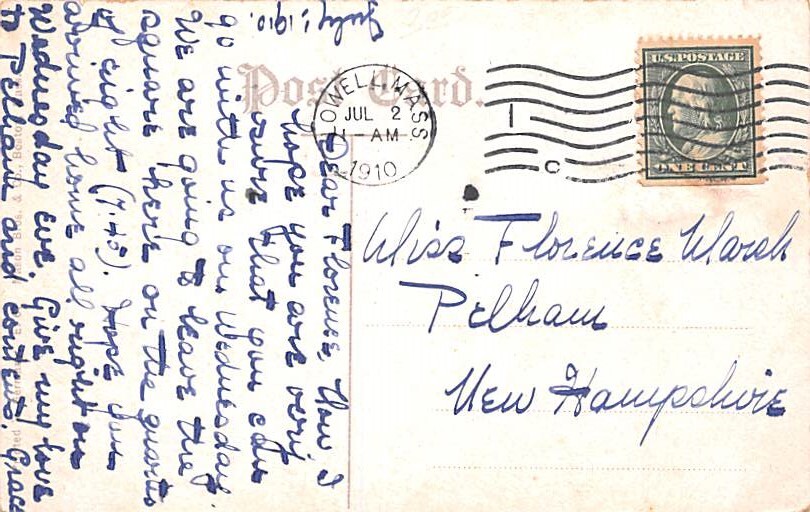 Post Card.
U.S. POSTAGE
ONE CENT
LOWELL, MASS
JUL 2
11 - AM
1910
July 1, 1910.
Dear Florence, How I
hope you are very
sure that you can
go with us on Wednesday.
We are going to leave the
square here on the quarter
of eight (7.45). Hope you
arrived home all right on
Wednesday eve. Give my love
to Pelham and contents. Grace
Miss Florence Marsh
Pelham
New Hampshire
Bros. & Co., Boston